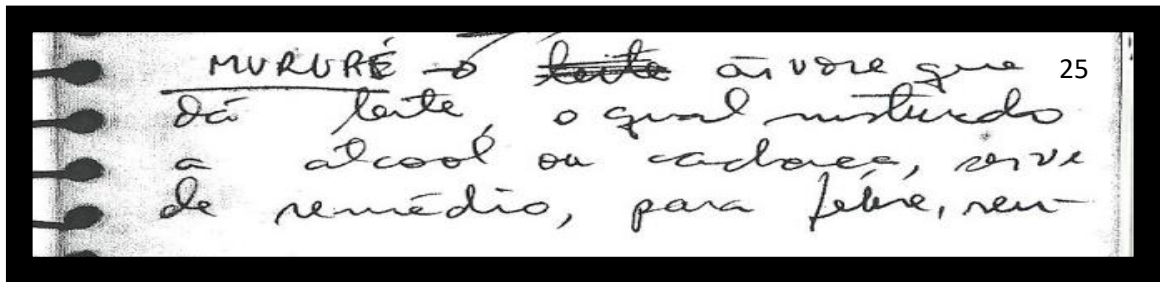 MURURÉ → leite árvore que 25
dá leite, o qual misturado
a álcool ou cachaça, serve
de remédio, para febre, reu-